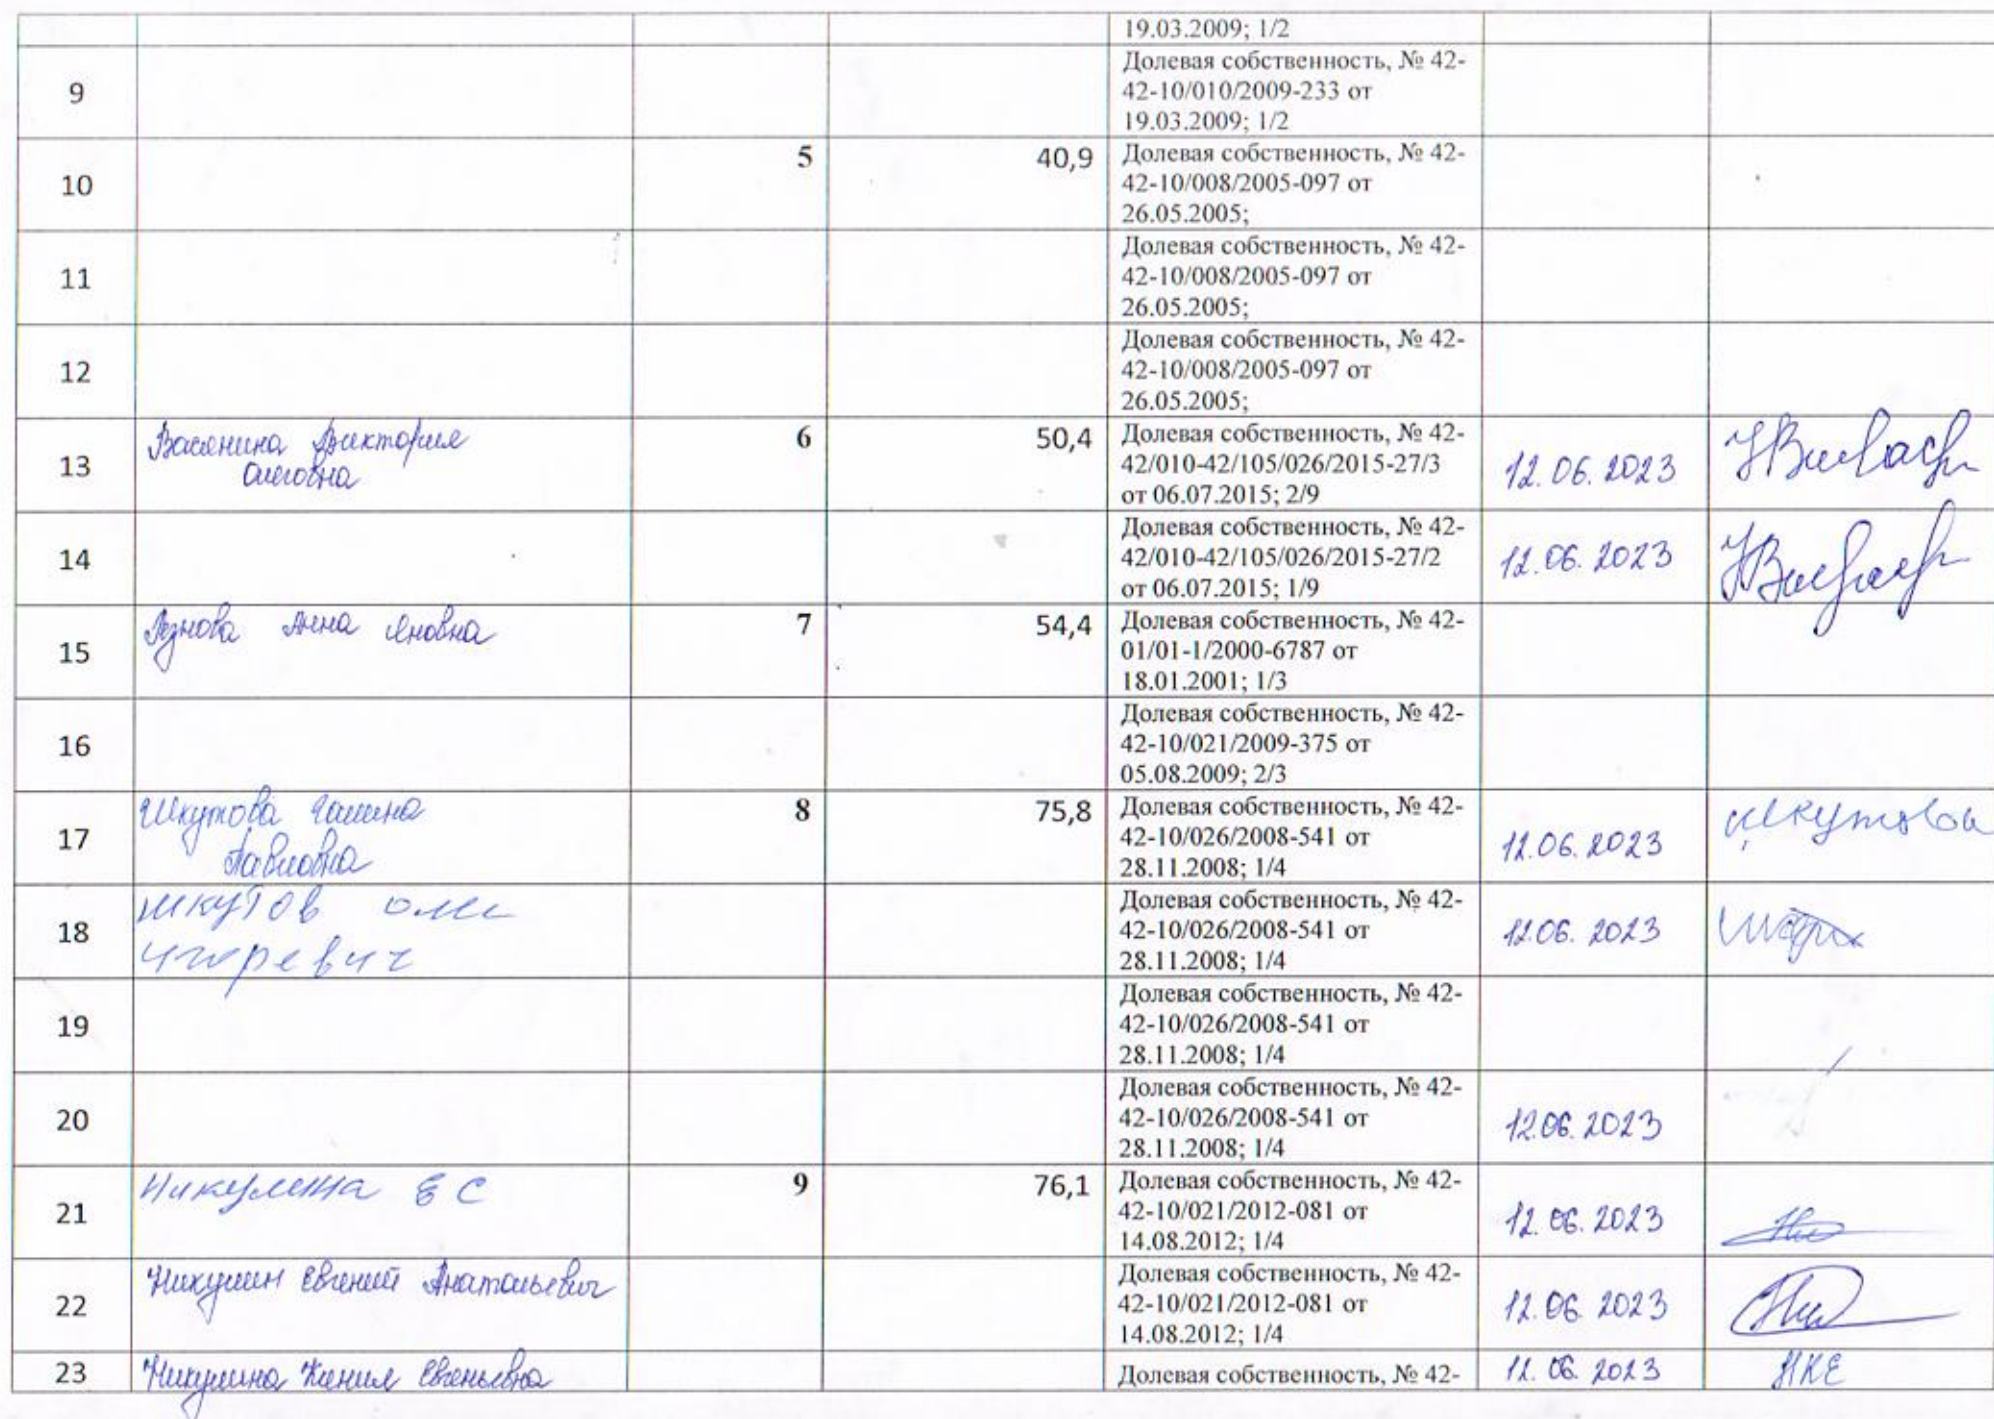 19.03.2009; 1/2
9
Долевая собственность, № 42-
42-10/010/2009-233 от
19.03.2009; 1/2
10
5
40,9
Долевая собственность, № 42-
42-10/008/2005-097 от
26.05.2005;
11
Долевая собственность, № 42-
42-10/008/2005-097 от
26.05.2005;
12
Долевая собственность, № 42-
42-10/008/2005-097 от
26.05.2005;
13
Виктория
Олеговна
6
50,4
Долевая собственность, № 42-
42/010-42/105/026/2015-27/3
от 06.07.2015; 2/9
12.06.2023
14
Долевая собственность, № 42-
42/010-42/105/026/2015-27/2
от 06.07.2015; 1/9
12.06.2023
15
Анна Яновна
7
54,4
Долевая собственность, № 42-
01/01-1/2000-6787 от
18.01.2001; 1/3
16
Долевая собственность, № 42-
42-10/021/2009-375 от
05.08.2009; 2/3
17
Шкутова Галина
Павловна
8
75,8
Долевая собственность, № 42-
42-10/026/2008-541 от
28.11.2008; 1/4
12.06.2023
Шкутова
18
Шкутов
Игоревич
Долевая собственность, № 42-
42-10/026/2008-541 от
28.11.2008; 1/4
12.06.2023
19
Долевая собственность, № 42-
42-10/026/2008-541 от
28.11.2008; 1/4
20
Долевая собственность, № 42-
42-10/026/2008-541 от
28.11.2008; 1/4
12.06.2023
21
Никулина Е С
9
76,1
Долевая собственность, № 42-
42-10/021/2012-081 от
14.08.2012; 1/4
12.06.2023
22
Никулин Евгений Анатольевич
Долевая собственность, № 42-
42-10/021/2012-081 от
14.08.2012; 1/4
12.06.2023
23
Никулина Ксения Евгеньевна
Долевая собственность, № 42-
12.06.2023
НКЕ